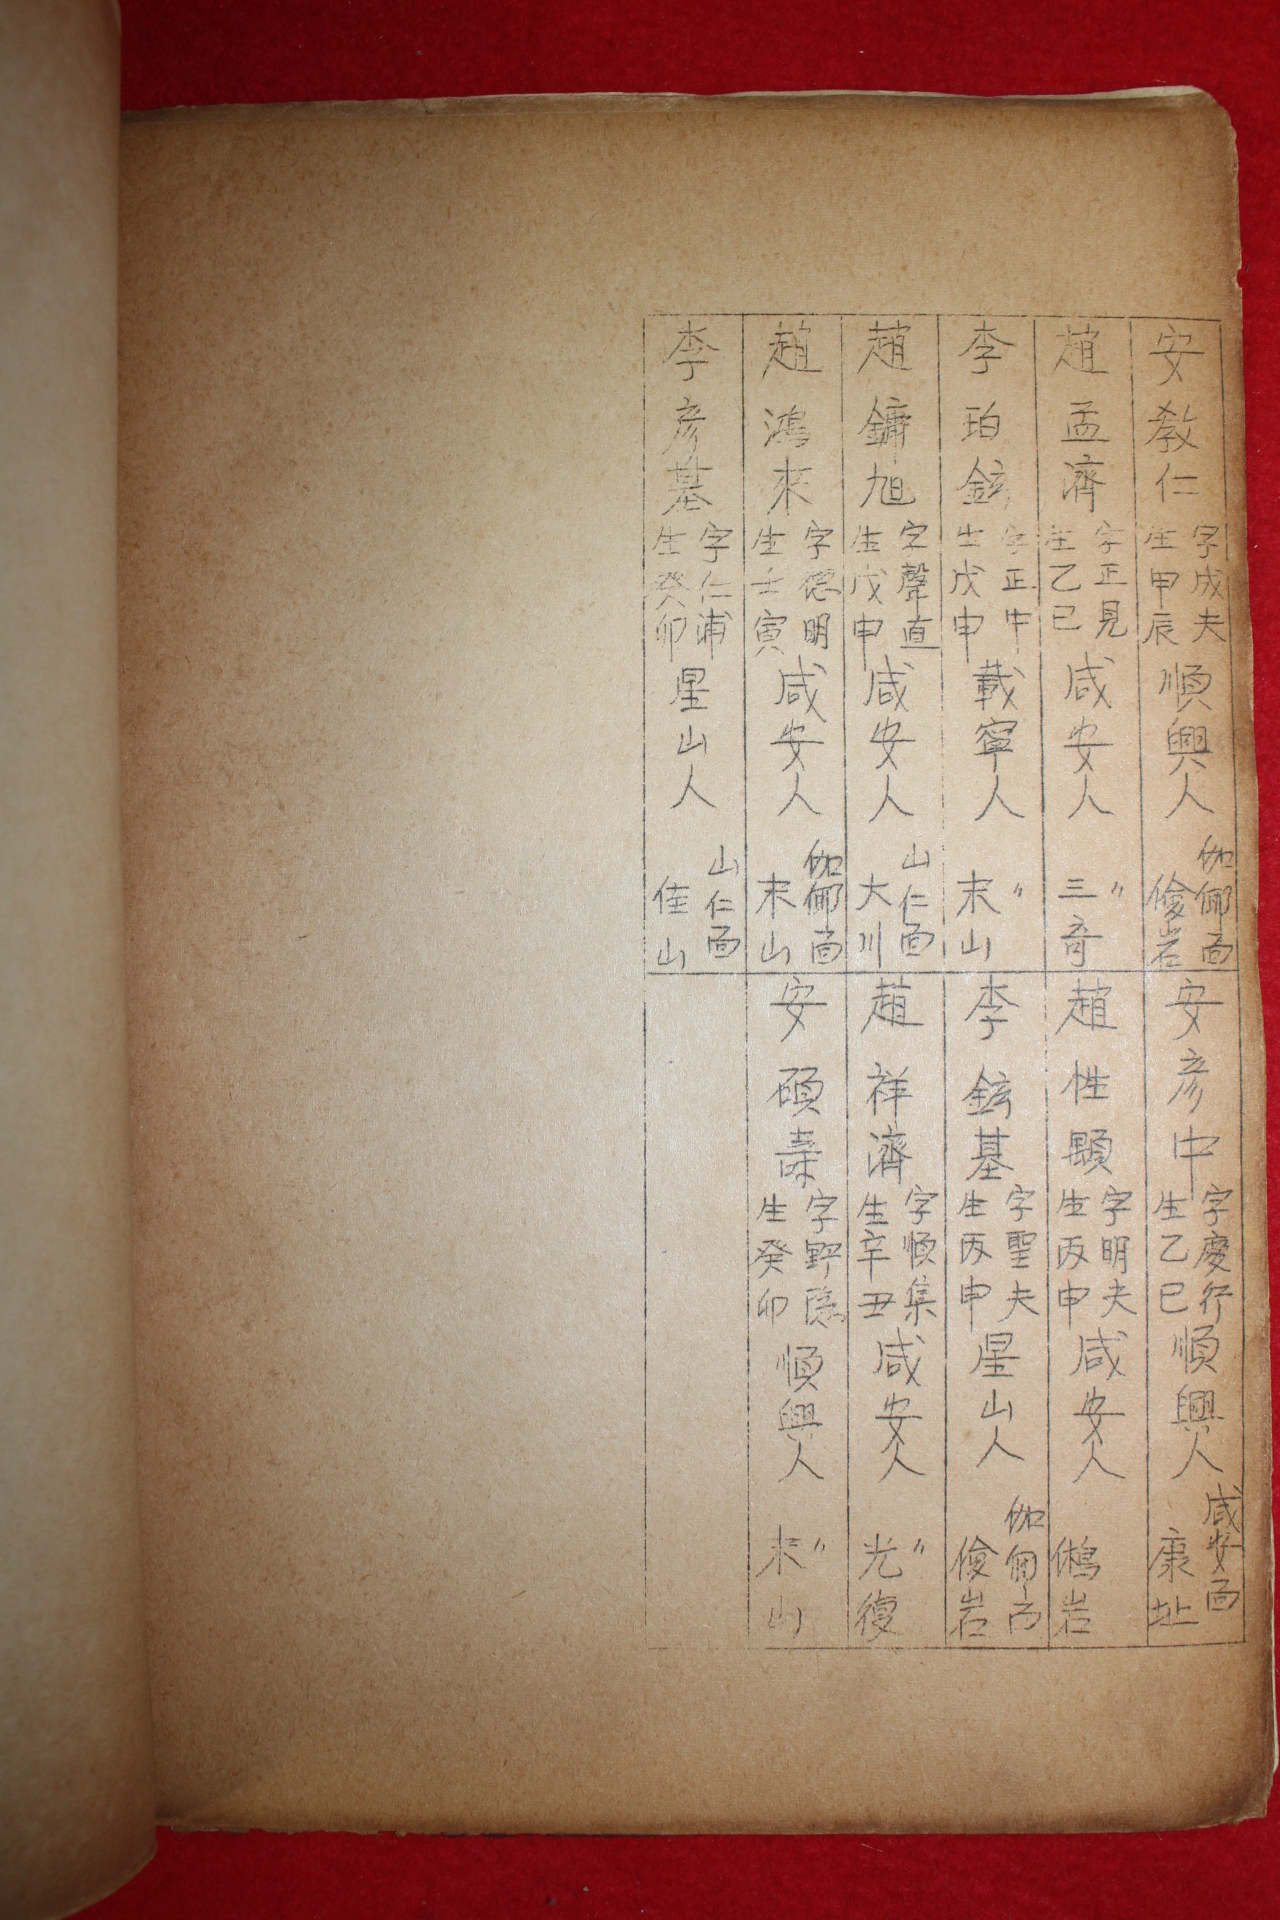 安教仁 字成夫 生甲辰 順興人 伽倻面 儉岩
趙孟濟 字正見 生乙巳 咸安人 〃 三奇
李珀鉉 字正中 生戊申 載寧人 〃 末山
趙鏞旭 字聲直 生戊申 咸安人 山仁面 大川
趙鴻來 字德明 生壬寅 咸安人 伽倻面 末山
李彦基 字仁浦 生癸卯 星山人 山仁面 佳山
安彦中 字慶行 生乙巳 順興人 咸安面 康址
趙性顯 字明夫 生丙申 咸安人 鵂岩
李鉉基 字聖夫 生丙申 星山人 伽倻面 儉岩
趙祥濟 字順集 生辛丑 咸安人 〃 光復
安碩壽 字野隱 生癸卯 順興人 〃 末山